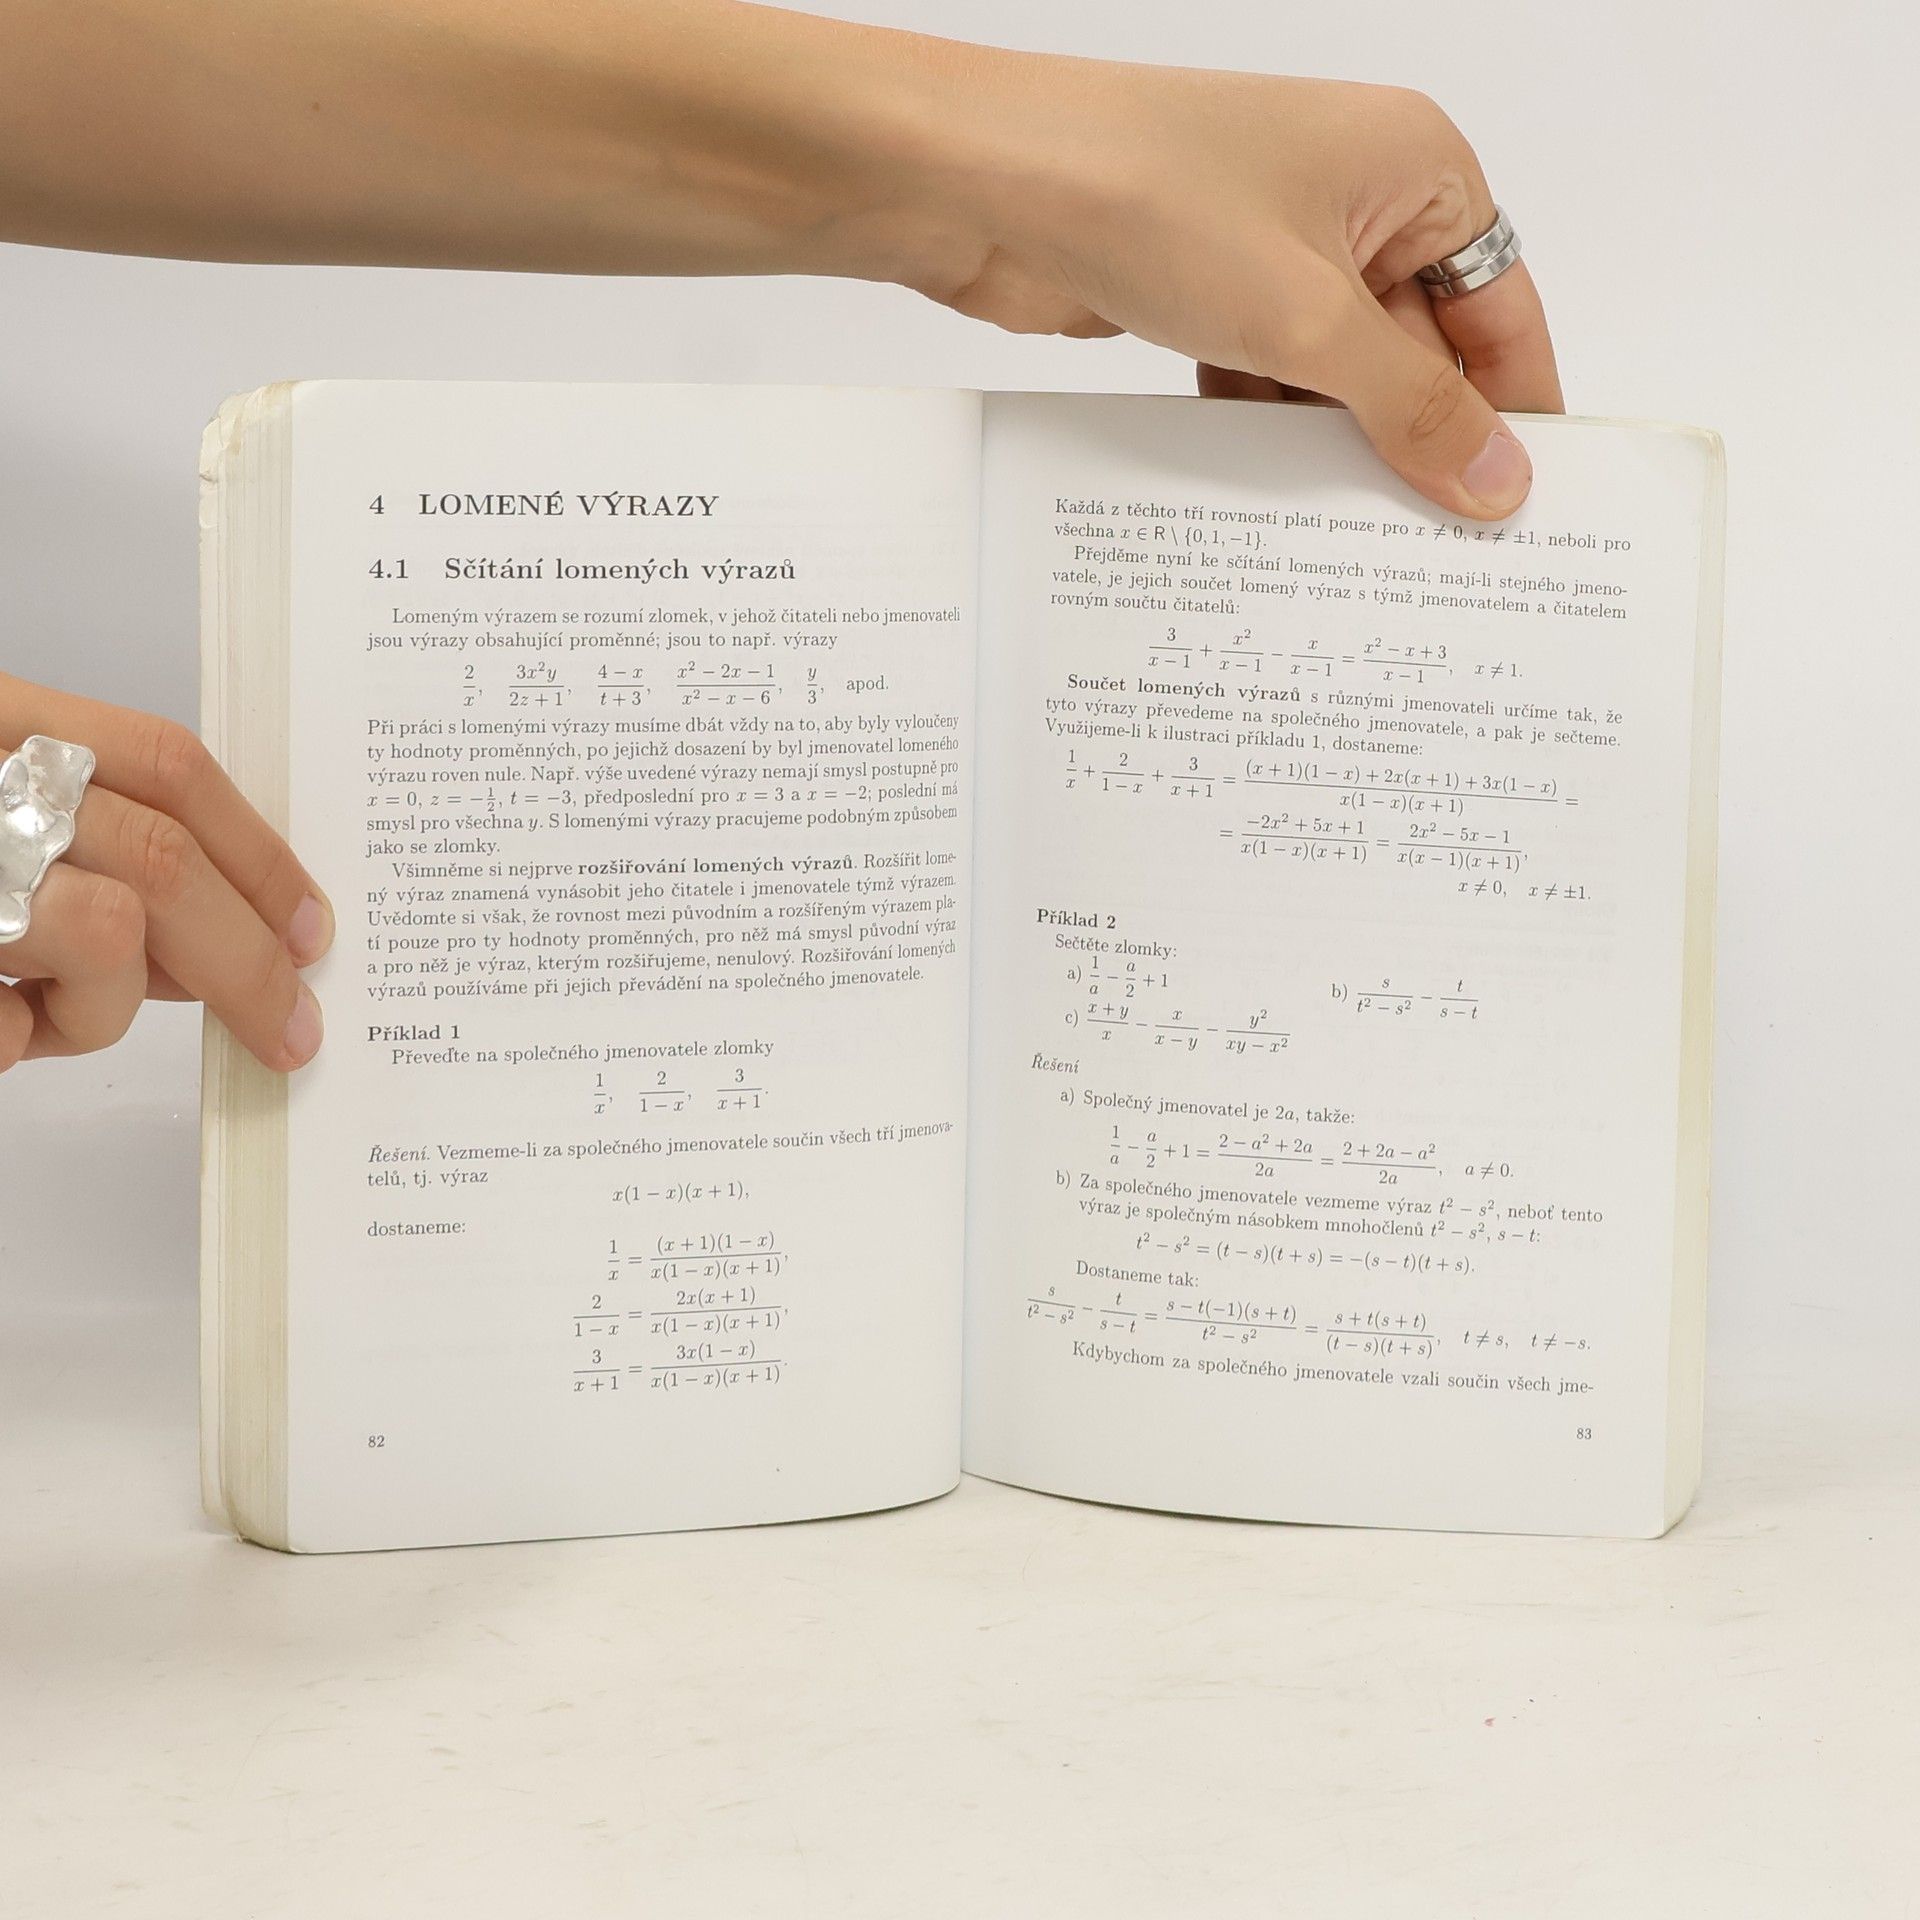 4 LOMENÉ VÝRAZY
4.1 Sčítání lomených výrazů
Lomeným výrazem se rozumí zlomek, v jehož čitateli nebo jmenovateli
jsou výrazy obsahující proměnné; jsou to např. výrazy
2/x, 3x²y/(2z + 1), (4 − x)/(t + 3), (x² − 2x − 1)/(x² − x − 6), y/3, apod.
Při práci s lomenými výrazy musíme dbát vždy na to, aby byly vyloučeny
ty hodnoty proměnných, po jejichž dosazení by byl jmenovatel lomeného
výrazu roven nule. Např. výše uvedené výrazy nemají smysl postupně pro
x = 0, z = −1/2, t = −3, předposlední pro x = 3 a x = −2; poslední má
smysl pro všechna y. S lomenými výrazy pracujeme podobným způsobem
jako se zlomky.
Všimněme si nejprve rozšiřování lomených výrazů. Rozšířit lome-
ný výraz znamená vynásobit jeho čitatele i jmenovatele týmž výrazem.
Uvědomte si však, že rovnost mezi původním a rozšířeným výrazem pla-
tí pouze pro ty hodnoty proměnných, pro něž má smysl původní výraz
a pro něž je výraz, kterým rozšiřujeme, nenulový. Rozšiřování lomených
výrazů používáme při jejich převádění na společného jmenovatele.
Příklad 1
Převeďte na společného jmenovatele zlomky
1/x, 2/(1 − x), 3/(x + 1).
Řešení. Vezmeme-li za společného jmenovatele součin všech tří jmenova-
telů, tj. výraz
x(1 − x)(x + 1),
dostaneme:
1/x = (x + 1)(1 − x)/(x(1 − x)(x + 1)),
2/(1 − x) = 2x(x + 1)/(x(1 − x)(x + 1)),
3/(x + 1) = 3x(1 − x)/(x(1 − x)(x + 1)).
82
Každá z těchto tří rovností platí pouze pro x ≠ 0, x ≠ ±1, neboli pro
všechna x ∈ R \ {0, 1, −1}.
Přejděme nyní ke sčítání lomených výrazů; mají-li stejného jmeno-
vatele, je jejich součet lomený výraz s týmž jmenovatelem a čitatelem
rovným součtu čitatelů:
3/(x − 1) + x²/(x − 1) − x/(x − 1) = (x² − x + 3)/(x − 1), x ≠ 1.
Součet lomených výrazů s různými jmenovateli určíme tak, že
tyto výrazy převedeme na společného jmenovatele, a pak je sečteme.
Využijeme-li k ilustraci příkladu 1, dostaneme:
1/x + 2/(1 − x) + 3/(x + 1) = ((x + 1)(1 − x) + 2x(x + 1) + 3x(1 − x))/(x(1 − x)(x + 1)) =
= (−2x² + 5x + 1)/(x(1 − x)(x + 1)) = (2x² − 5x − 1)/(x(x − 1)(x + 1)),
x ≠ 0, x ≠ ±1.
Příklad 2
Sečtěte zlomky:
a) 1/a − a/2 + 1 b) s/(t² − s²) − t/(s − t)
c) (x + y)/x − x/(x − y) − y²/(xy − x²)
Řešení
a) Společný jmenovatel je 2a, takže:
1/a − a/2 + 1 = (2 − a² + 2a)/2a = (2 + 2a − a²)/2a, a ≠ 0.
b) Za společného jmenovatele vezmeme výraz t² − s², neboť tento
výraz je společným násobkem mnohočlenů t² − s², s − t:
t² − s² = (t − s)(t + s) = −(s − t)(t + s).
Dostaneme tak:
s/(t² − s²) − t/(s − t) = (s − t(−1)(s + t))/(t² − s²) = (s + t(s + t))/((t − s)(t + s)), t ≠ s, t ≠ −s.
Kdybychom za společného jmenovatele vzali součin všech jme-
83